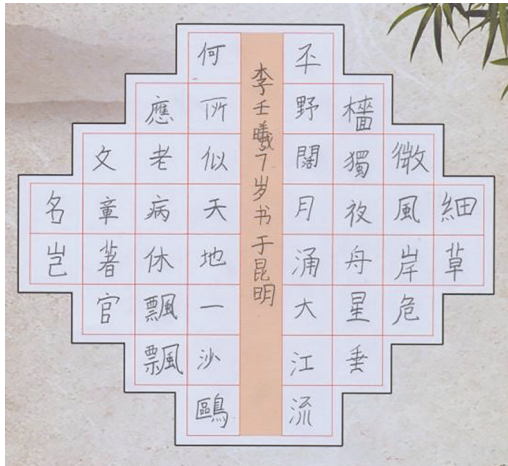 細草
微風岸危
檣獨夜舟星垂
平野闊月涌大江流
李壬曦7岁书于昆明
何所似天地一沙鷗
應老病休飄飄
文章著官
名岂